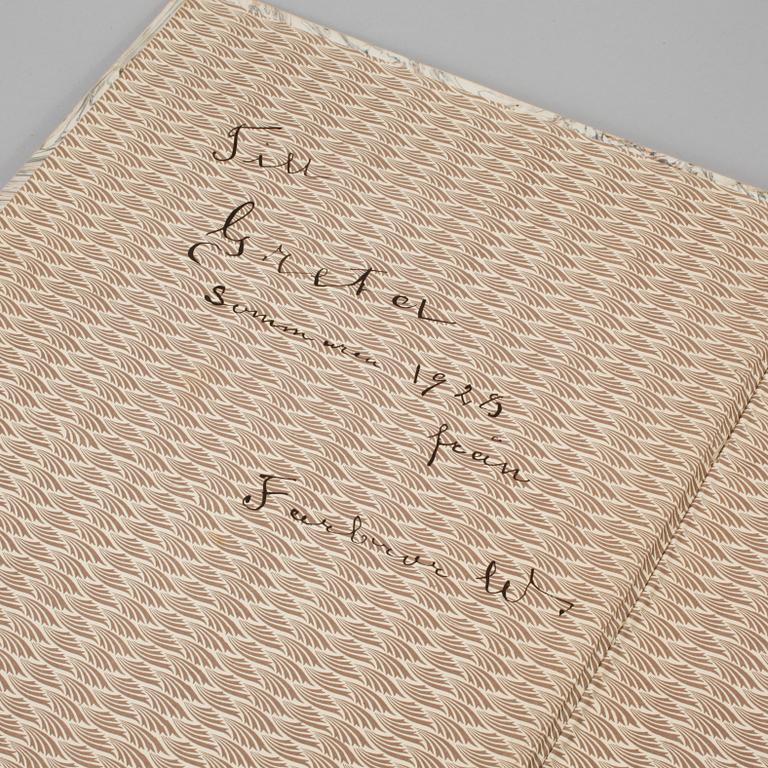 Till
Gretel
sommaren 1928
från
Farbror W.